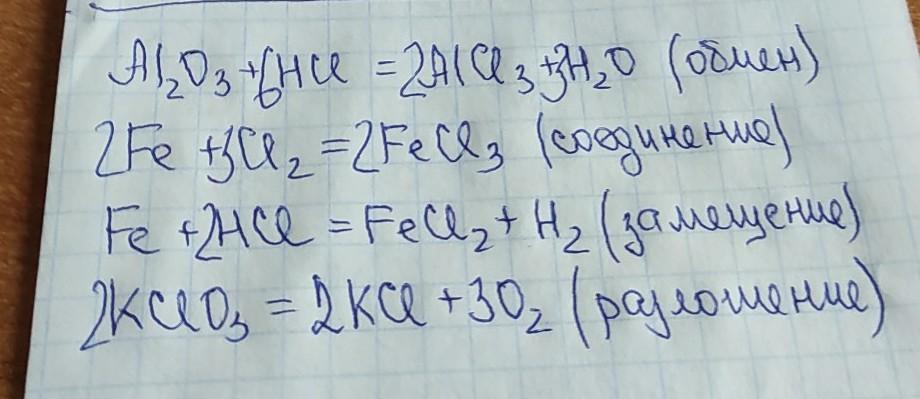 Al₂O₃ + 6HCl = 2AlCl₃ + 3H₂O (обмен)
2Fe + 3Cl₂ = 2FeCl₃ (соединение)
Fe + 2HCl = FeCl₂ + H₂ (замещение)
2KClO₃ = 2KCl + 3O₂ (разложение)